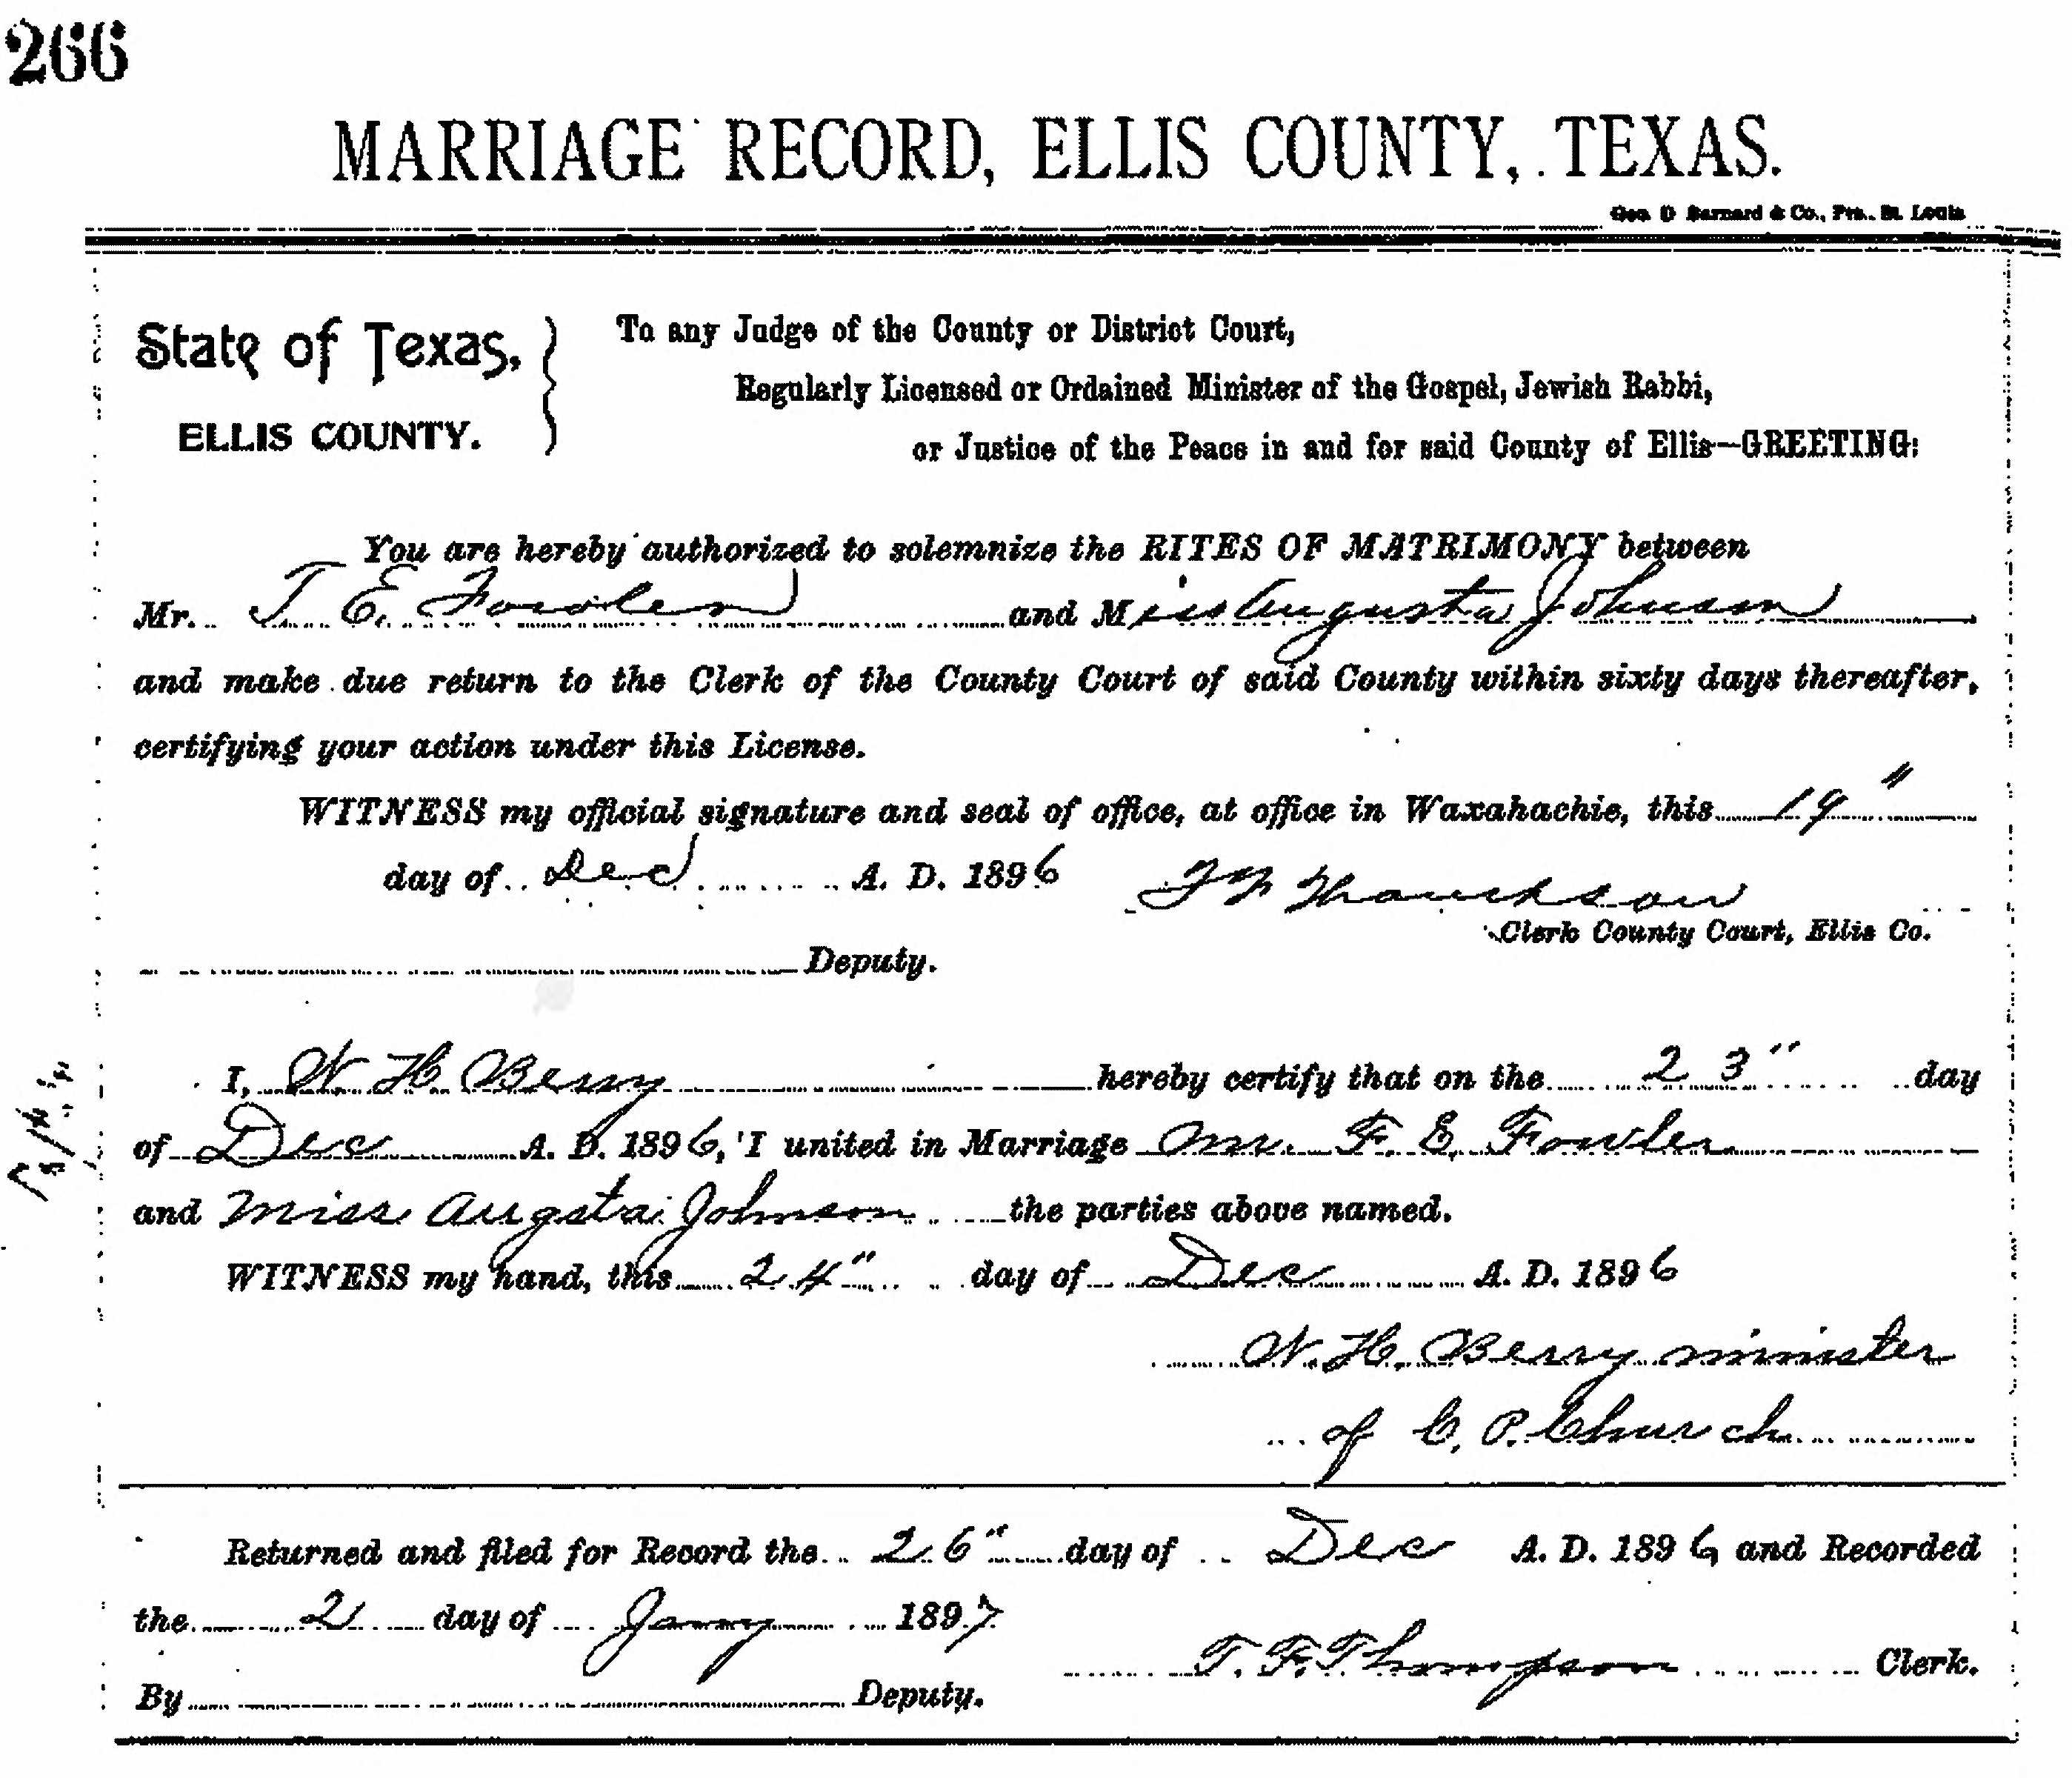 266
MARRIAGE RECORD, ELLIS COUNTY, TEXAS.
Geo. D Barnard & Co., Prs., St. Louis
State of Texas,
ELLIS COUNTY.
To any Judge of the County or District Court,
Regularly Licensed or Ordained Minister of the Gospel, Jewish Rabbi,
or Justice of the Peace in and for said County of Ellis—GREETING:
You are hereby authorized to solemnize the RITES OF MATRIMONY between
Mr. T. E. Fowler and Miss Augusta Johnson
and make due return to the Clerk of the County Court of said County within sixty days thereafter,
certifying your action under this License.
WITNESS my official signature and seal of office, at office in Waxahachie, this 19"
day of Dec A. D. 1896
Clerk County Court, Ellis Co.
Deputy.
I, W. H. Berry hereby certify that on the 23" day
of Dec A. D. 1896, I united in Marriage Mr. F. E. Fowler
and Miss Augsta Johnson the parties above named.
WITNESS my hand, this 24" day of Dec A. D. 1896
W. H. Berry minister
of C. P. Church
Returned and filed for Record the 26" day of Dec A. D. 1896 and Recorded
the 2 day of Jany 1897
T. F. Thompson Clerk.
By Deputy.